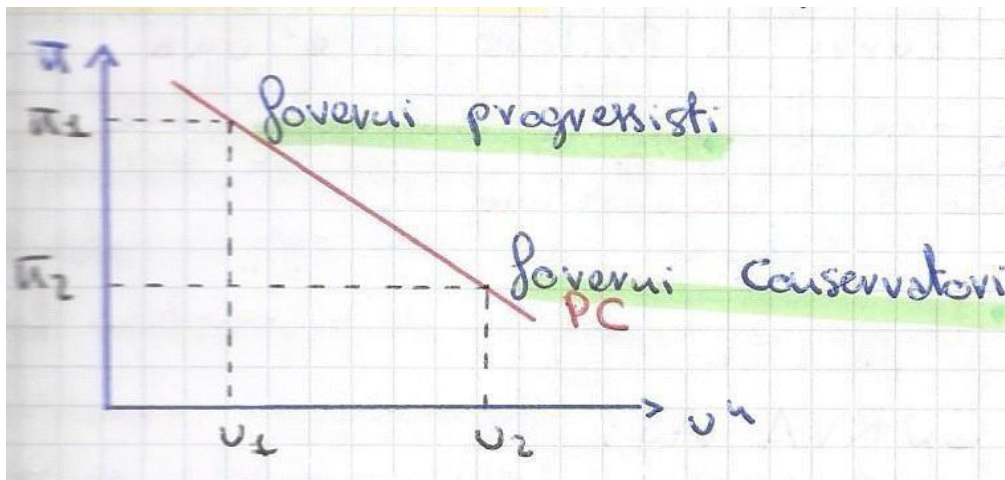 π
π1
Governi progressisti
π2
Governi Conservatori
PC
u1
u2
uⁿ